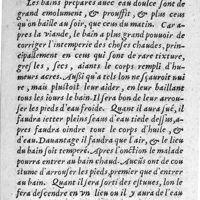 Les bains preparés auec eau douce sont de
grand emolument, & prouffit, & plus ceus
qu'on baille au soir, que ceus du matin. Car a-
pres la viande, le bain a plus grand pouuoir de
corriger l'intemperie des choses chaudes, prin-
cipallement en ceus qui sont de rare tixture,
gresles, secs, aiants le corps rempli d'hu-
meurs acres. Aussi qu'a tels lon ne sçauroit nui
re, mais plustost leur aider, en leur baillant
tous les iours le bain. Il sera bon de leur arrou-
ser les pieds d'eau froide. Quant il aura sué, il
faudra ietter plein seaus d'eau tiede dessus, a-
pres faudra oindre tout le corps d'huile, &
d'eau. Dauantage il faudra que l'air, & le lieu
du bain soit temperé. Apres l'onction le malade
pourra entrer au bain chaud. Aucuns ont de cou
stume d'arrouser les pieds, premier que d'entrer
au bain. Quant il sera sorti des estuues, lon le
fera descendre en vn lieu ou il y aura de l'eau